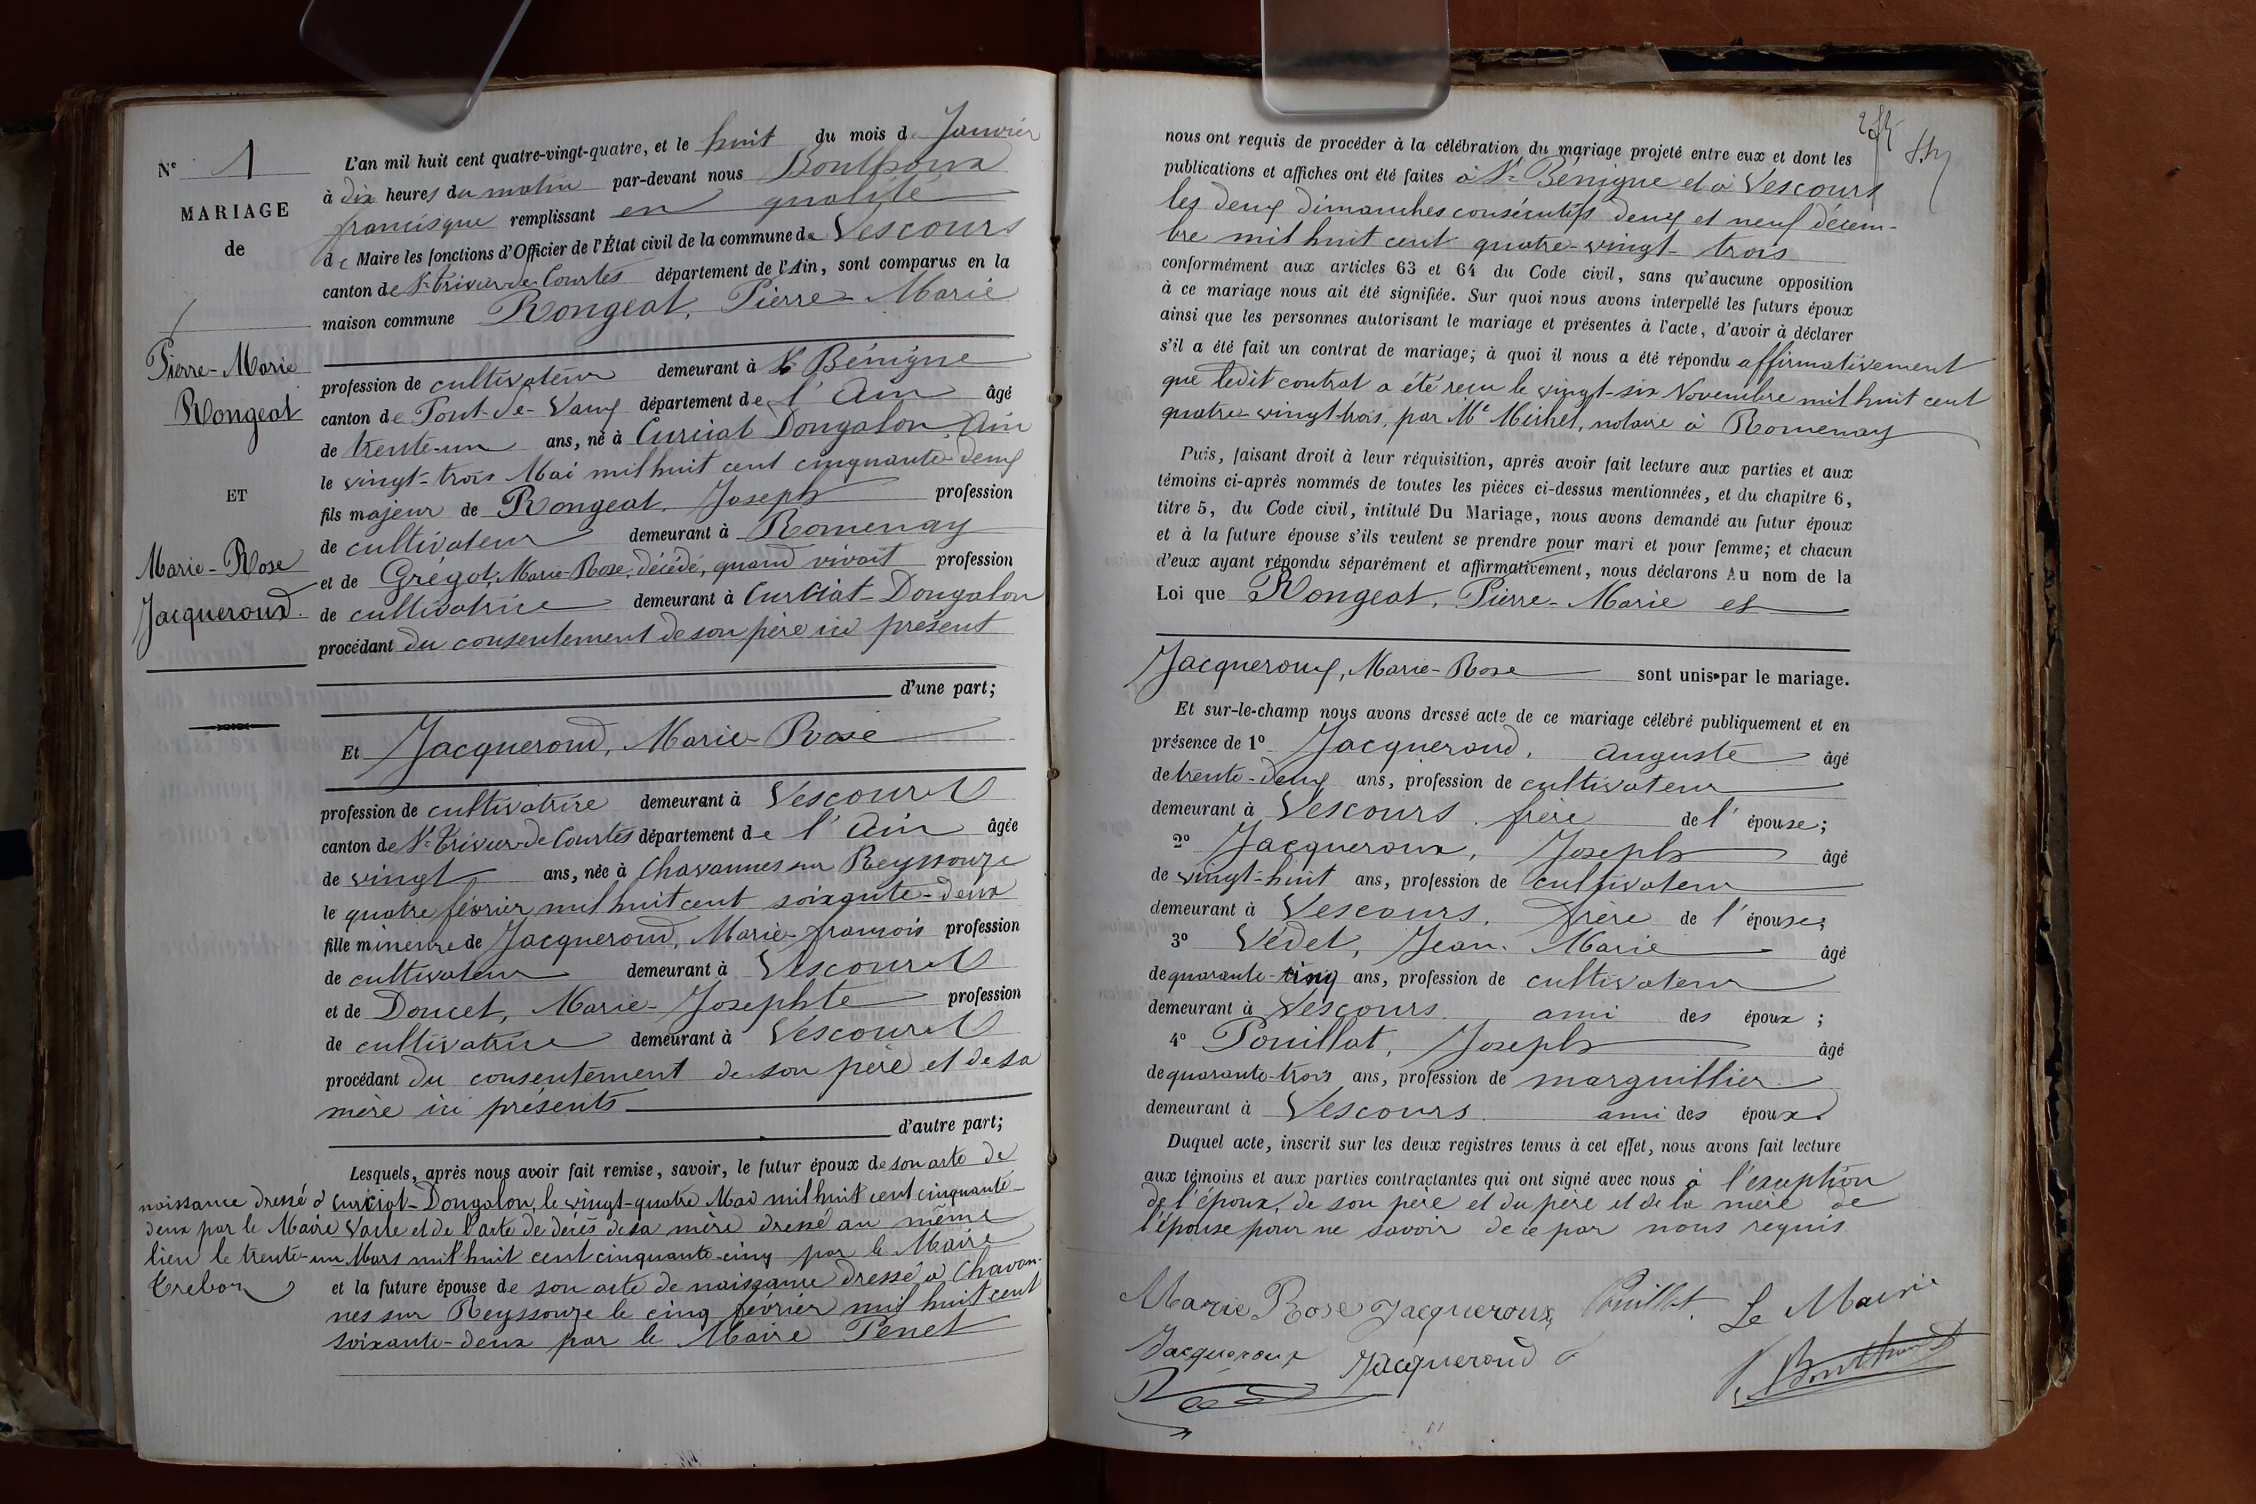 N° 1
MARIAGE
de
Pierre-Marie
Rongeat
ET
Marie-Rose
Jacqueroud.
L'an mil huit cent quatre-vingt-quatre, et le huit du mois de Janvier
à dix heures du matin par-devant nous Bonthoux
francisque remplissant en qualité
de Maire les fonctions d'Officier de l'État civil de la commune de Vescours
canton de St Trivier-de-Courtes département de l'Ain, sont comparus en la
maison commune Rongeat, Pierre-Marie
profession de cultivateur demeurant à St Bénigne
canton de Pont-de-Vaux département de l'Ain âgé
de trente-un ans, né à Curciat Dongalon, Ain
le vingt-trois Mai mil huit cent cinquante-deux
fils majeur de Rongeat, Joseph profession
de cultivateur demeurant à Romenay
et de Grégot, Marie-Rose, décédé, quand vivait profession
de cultivatrice demeurant à Curciat-Dongalon
procédant du consentement de son père ici présent
d'une part;
Et Jacqueroud, Marie-Rose
profession de cultivatrice demeurant à Vescours
canton de St Trivier-de-Courtes département de l'Ain âgée
de vingt ans, née à Chavannes sur Reyssouze
le quatre février mil huit cent soixante-deux
fille mineure de Jacqueroud, Marie-françois profession
de cultivateur demeurant à Vescours
et de Doucet, Marie-Josephte profession
de cultivatrice demeurant à Vescours
procédant du consentement de son père et de sa
mère ici présents
d'autre part;
Lesquels, après nous avoir fait remise, savoir, le futur époux de son acte de
naissance dressé à Curciat-Dongalon, le vingt-quatre Mai mil huit cent cinquante-
deux par le Maire Varle et de l'acte de décès de sa mère dressé au même
lieu le trente-un Mars mil huit cent cinquante-cinq par le Maire
Trebon
et la future épouse de son acte de naissance dressé à Chavan-
nes sur Reyssouze le cinq février mil huit cent
soixante-deux par le Maire Penet
nous ont requis de procéder à la célébration du mariage projeté entre eux et dont les
publications et affiches ont été faites à St Bénigne et à Vescours
les deux dimanches consécutifs deux et neuf décem-
bre mil huit cent quatre-vingt-trois
conformément aux articles 63 et 64 du Code civil, sans qu'aucune opposition
à ce mariage nous ait été signifiée. Sur quoi nous avons interpellé les futurs époux
ainsi que les personnes autorisant le mariage et présentes à l'acte, d'avoir à déclarer
s'il a été fait un contrat de mariage; à quoi il nous a été répondu affirmativement
que ledit contrat a été reçu le vingt-six Novembre mil huit cent
quatre-vingt-trois, par Me Michel, notaire à Romenay
Puis, faisant droit à leur réquisition, après avoir fait lecture aux parties et aux
témoins ci-après nommés de toutes les pièces ci-dessus mentionnées, et du chapitre 6,
titre 5, du Code civil, intitulé Du Mariage, nous avons demandé au futur époux
et à la future épouse s'ils veulent se prendre pour mari et pour femme; et chacun
d'eux ayant répondu séparément et affirmativement, nous déclarons Au nom de la
Loi que Rongeat, Pierre-Marie et
Jacqueroux, Marie-Rose sont unis par le mariage.
Et sur-le-champ nous avons dressé acte de ce mariage célébré publiquement et en
présence de 1° Jacqueroud, auguste âgé
de trente-deux ans, profession de cultivateur
demeurant à Vescours, frère de l'épouse;
2° Jacqueroux, Joseph âgé
de vingt-huit ans, profession de cultivateur
demeurant à Vescours, frère de l'épouse;
3° Védet, Jean-Marie âgé
de quarante-cinq ans, profession de cultivateur
demeurant à Vescours ami des époux;
4° Pouillat, Joseph âgé
de quarante-trois ans, profession de marguillier
demeurant à Vescours ami des époux.
Duquel acte, inscrit sur les deux registres tenus à cet effet, nous avons fait lecture
aux témoins et aux parties contractantes qui ont signé avec nous à l'exeption
de l'époux, de son père et du père et de la mère de
l'épouse pour ne savoir de ce par nous requis
Marie Rose Jacqueroux Pouillat. Le Maire
Jacqueroux Jacqueroud Bonthoux